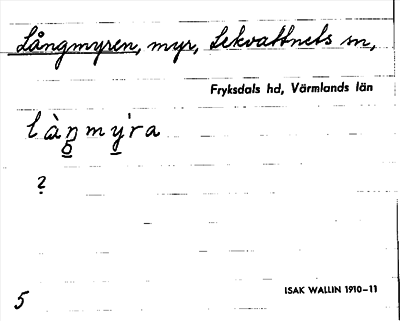 Långmyren, myr, Lekvattnets sn,
Fryksdals hd, Värmlands län
làn̥g my̠'ra
?
ISAK WALLIN 1910–11
5